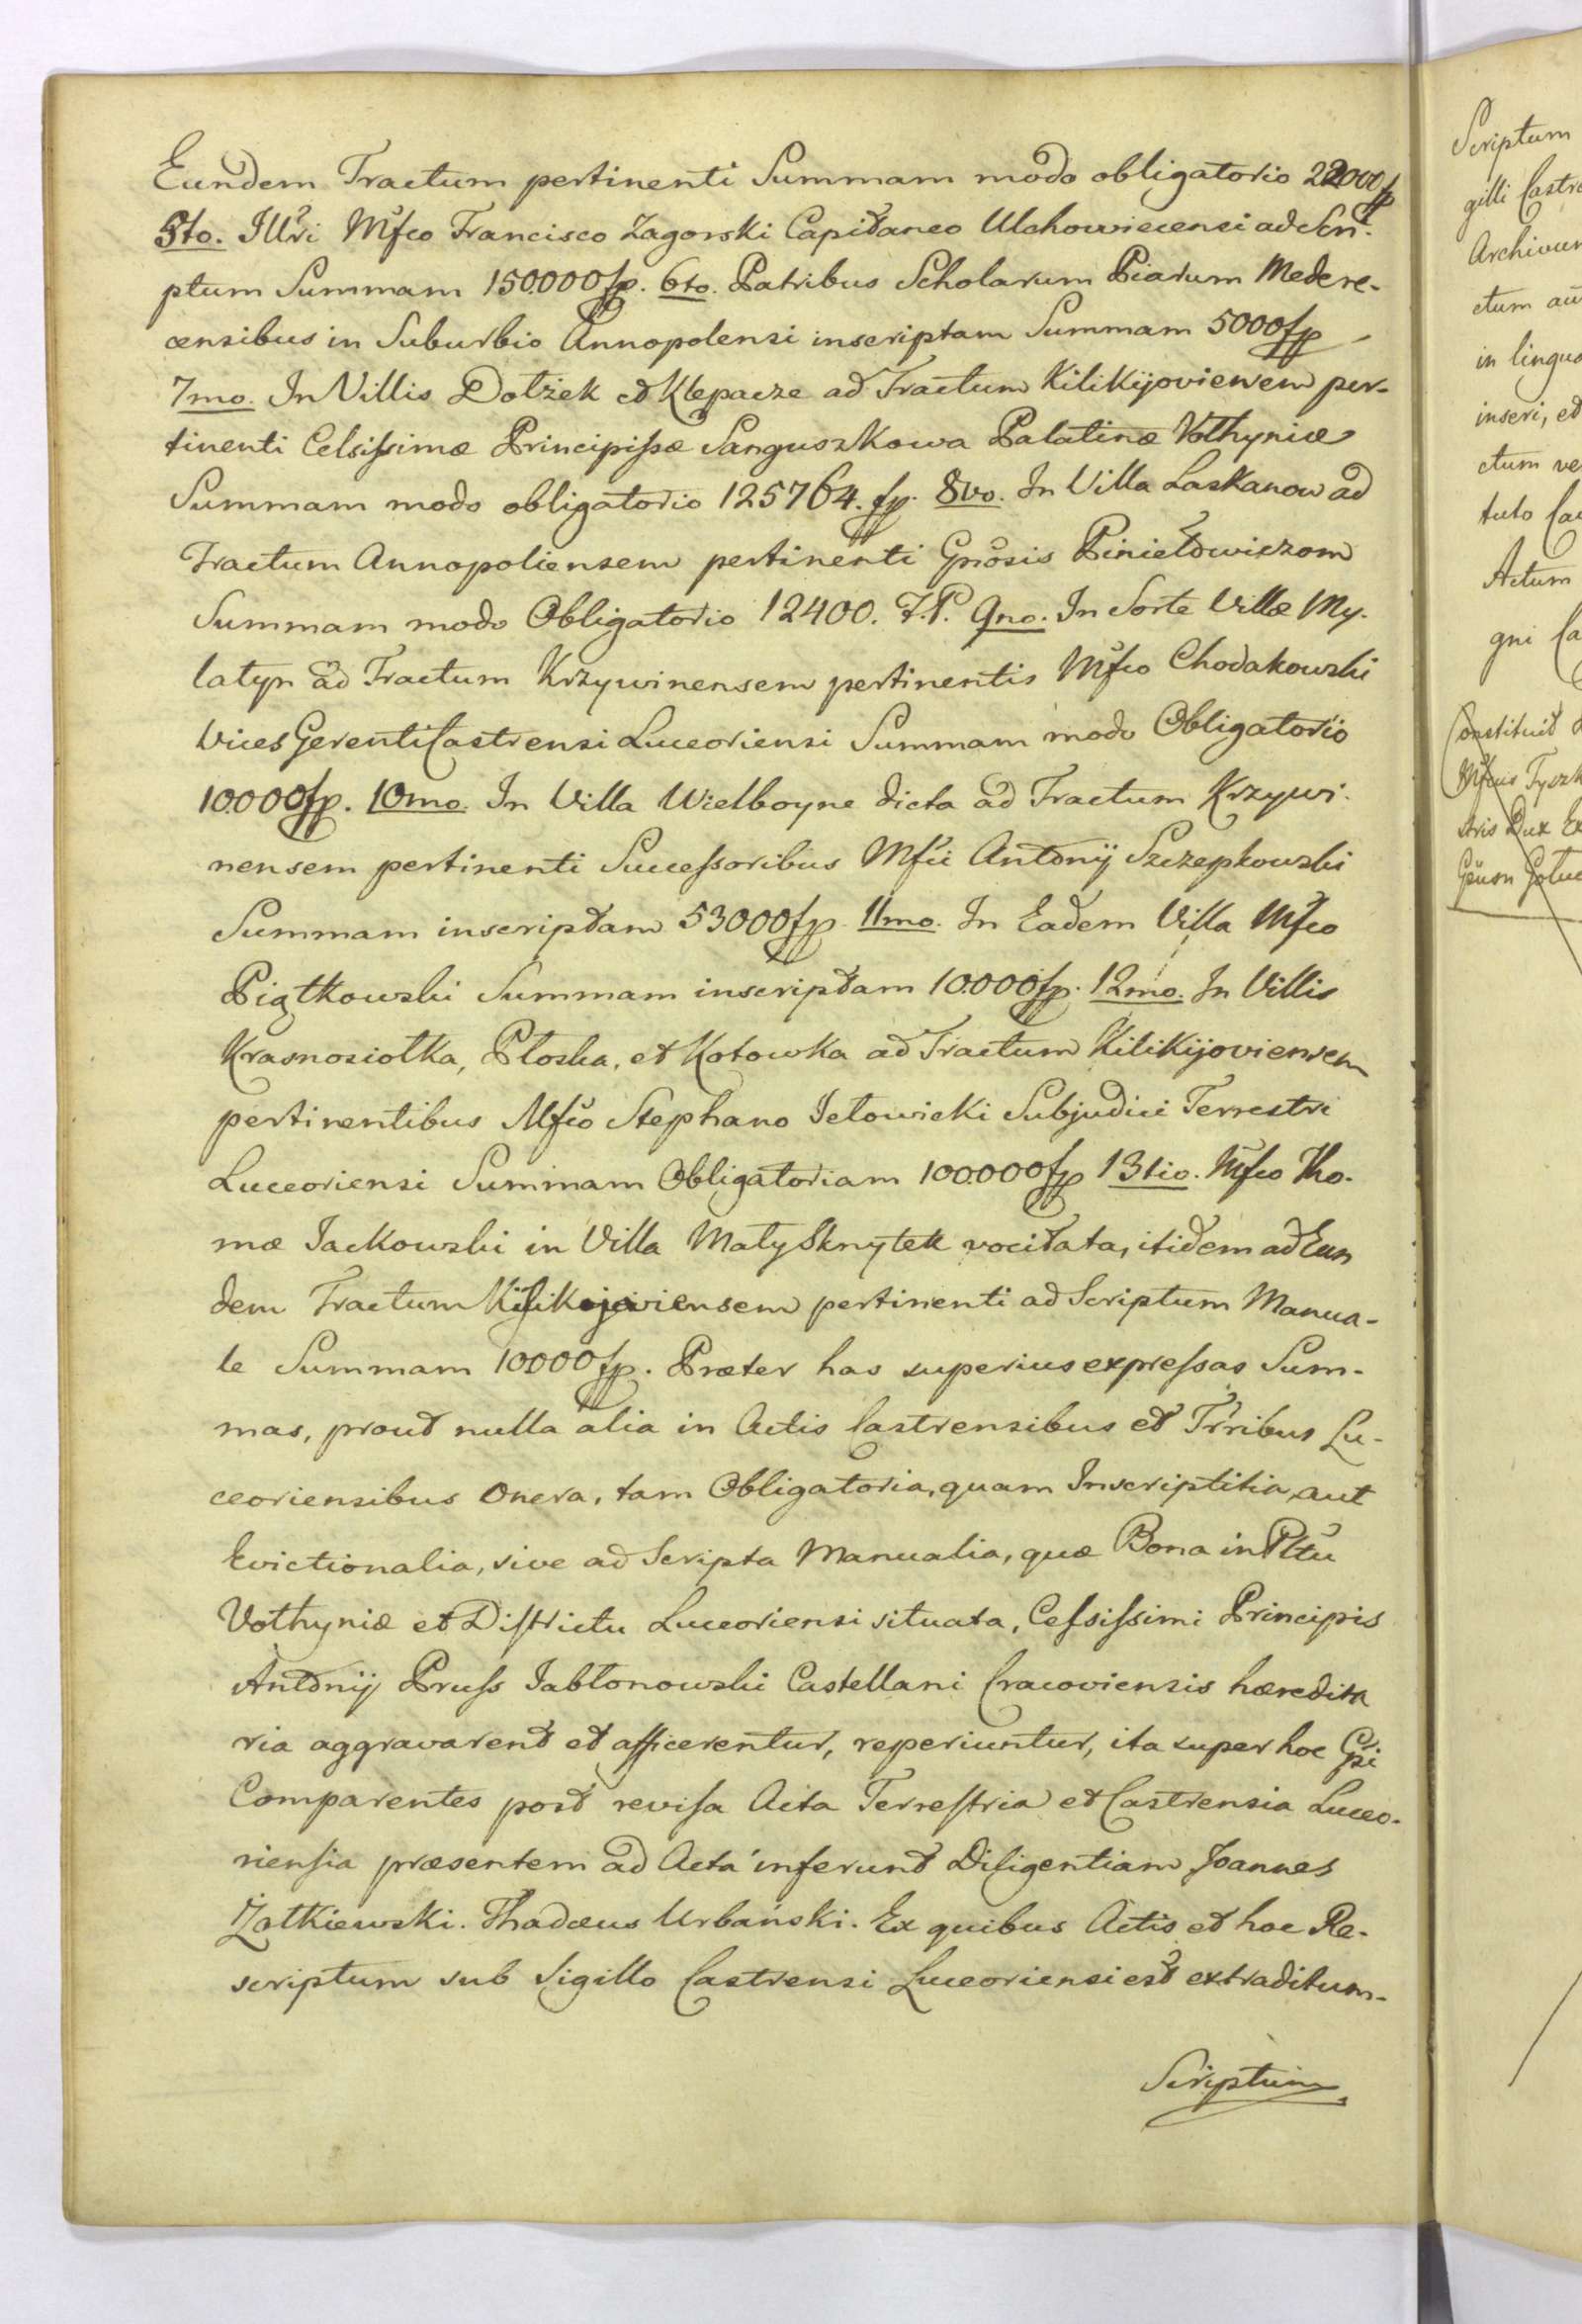 Eundem Tractum pertinenti Summam modo obligatorio 22000 fp
5to. Illri Mfco Francisco Zagorski Capitaneo Ulchowiecensi ad Scri-
ptum Summam 150000 fp. 6to. Patribus Scholarum Piarum Medere-
censibus in Suburbio Annopolensi inscriptam Summam 5000 fp
7mo. In Villis Dołżek et Klepacze ad Tractum Kilikijoviensem per-
tinenti Celsissimæ Principissæ Sanguszkowa Palatinæ Vołhyniæ
Summam modo obligatorio 125764. fp. 8vo. In Villa Laskanow ad
Tractum Annopoliensem pertinenti Gnosis Piniełowiczom
Summam modo Obligatorio 12400. F.P. 9no. In Sorte Villæ My-
latyn ad Tractum Krzywinensem pertinentis Mfco Chodakowski
Vices Gerenti Castrensi Luceoriensi Summam modo Obligatorio
10.000 fp. 10mo. In Villa Wielboyne dicta ad Tractum Krzywi-
nensem pertinenti Successoribus Mfci Antonij Szczepkowski
Summam inscriptam 53000 fp. 11mo. In Eadem Villa Mfco
Piątkowski Summam inscriptam 10.000 fp. 12mo. In Villis
Krasnosiołka, Płoska, et Kotowka ad Tractum Kilikijoviensem
pertinentibus Mfco Stephano Jełowicki Subjudici Terrestri
Luceoriensi Summam Obligatoriam 100.000 fp 13tio. Mfco Tho-
mæ Jackowski in Villa Mały Sknytek vocitata, itidem ad Eun
dem Tractum Kilikijoviensem pertinenti ad Scriptum Manua-
le Summam 10000 fp. Præter has superius expressas Sum-
mas, prout nulla alia in Actis Castrensibus et Trribus Lu-
ceoriensibus Onera, tam Obligatoria, quam Inscriptitia, aut
Evictionalia, sive ad Scripta Manualia, quæ Bona in Pltu
Vołhyniæ et Districtu Luceoriensi situata, Celsissimi Principis
Antonij Pruss Jabłonowski Castellani Cracoviensis hæredita
ria aggravarent et afficerentur, reperiuntur, ita super hoc Gsi
Comparentes post revisa Acta Terrestria et Castrensia Luceo-
riensia præsentem ad Acta inferunt Diligentiam Joannes
Żołkiewski. Thadæus Urbański. Ex quibus Actis et hoc Re-
scriptum sub Sigillo Castrensi Luceoriensi est extraditum.
Scriptum
Scriptum
gilli Castre
Archivum
ctum au
in lingua
inseri, et
ctum ve
tulo Ca
Actum
gni Ca
Constituit
Mfcus Tyszk
stris Dux Ex